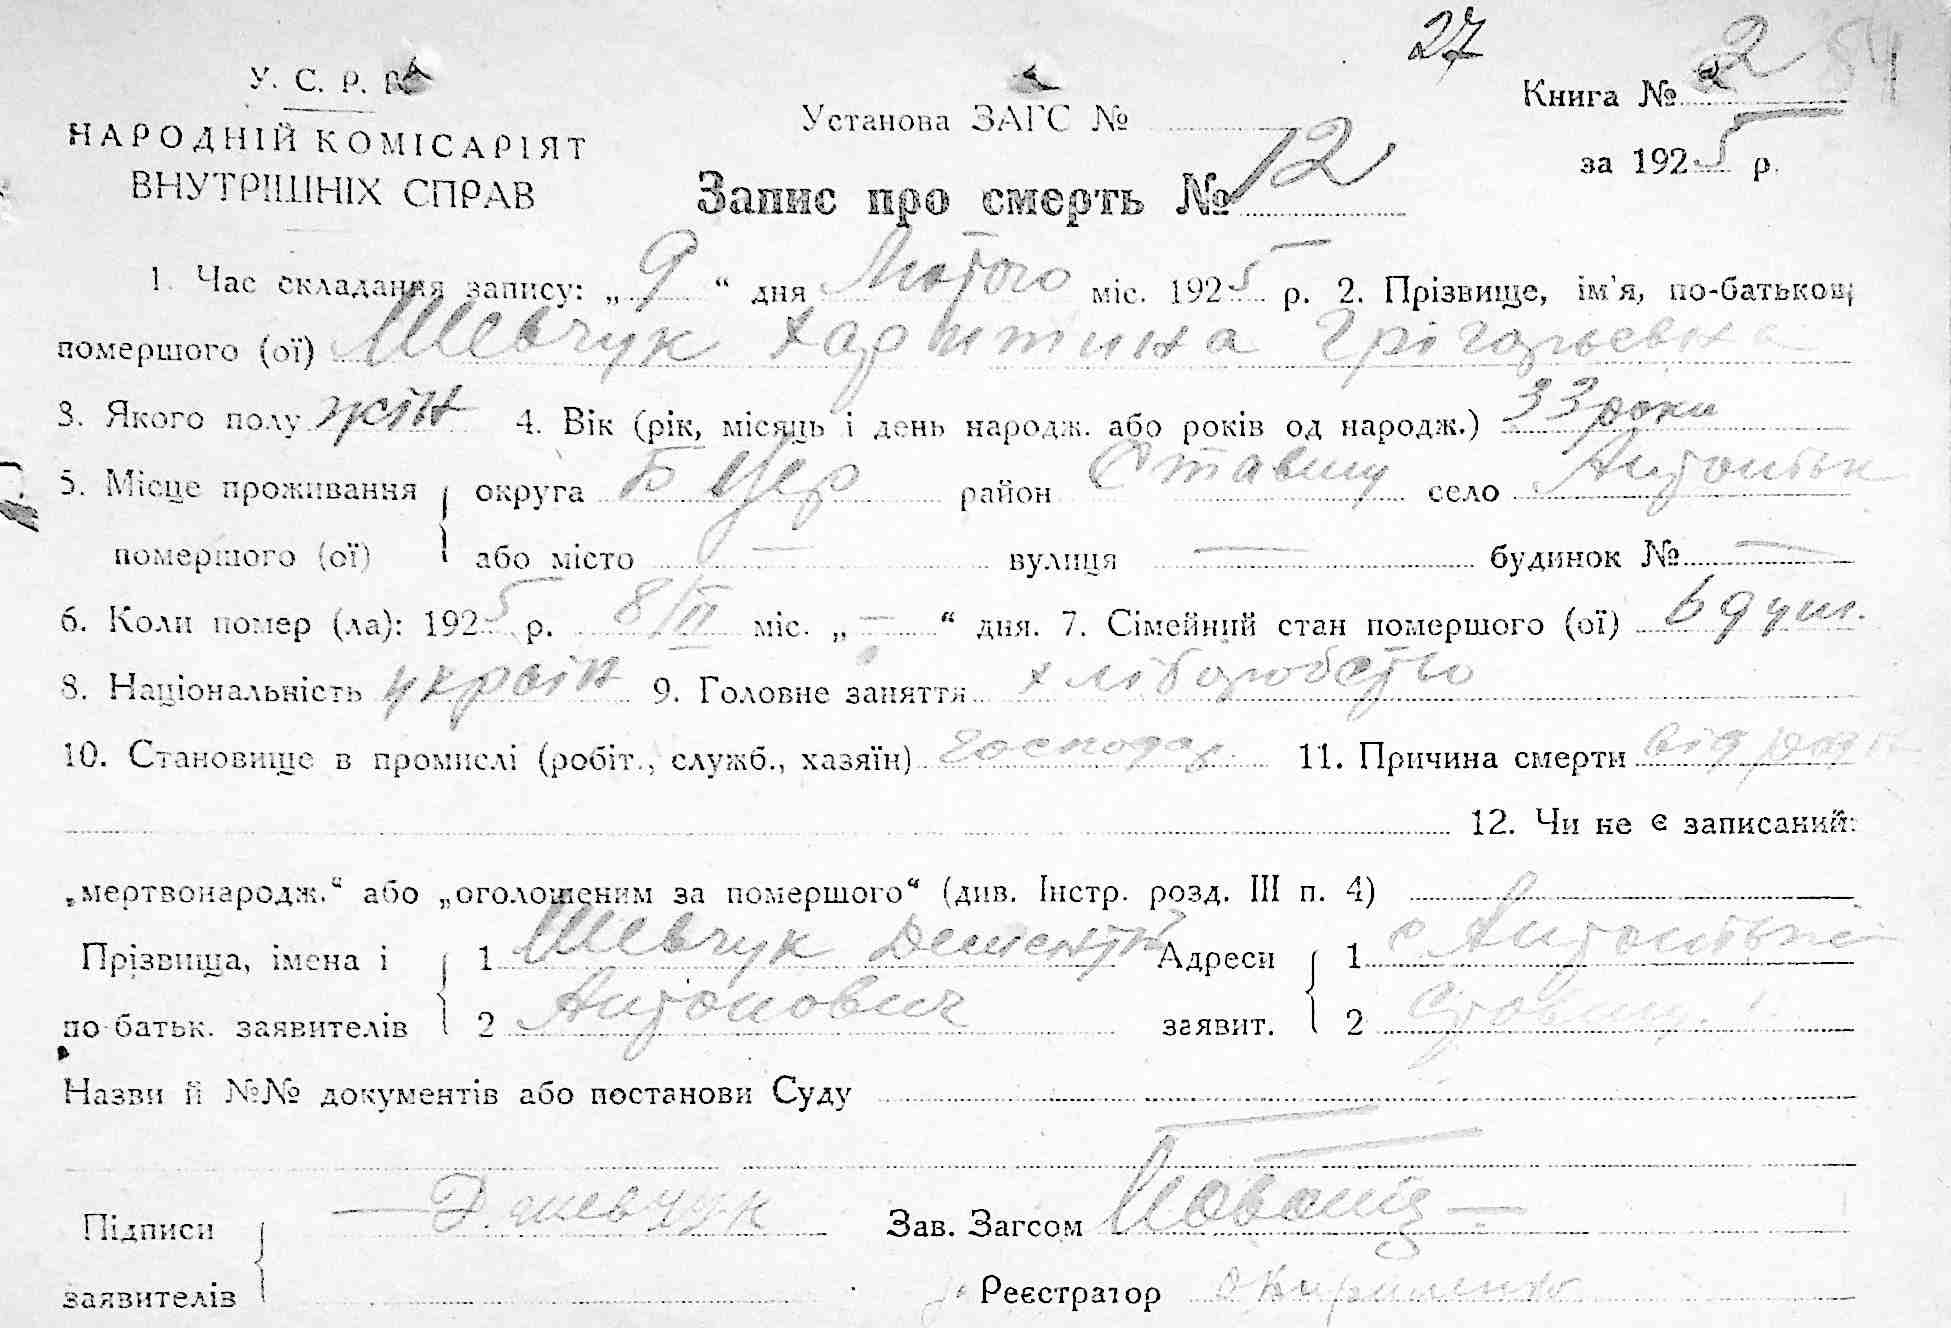 27
У. С. Р. Р.
НАРОДНІЙ КОМІСАРІЯТ
ВНУТРІШНІХ СПРАВ
Установа ЗАГС №
Книга № 2 54
за 1925 р.
Запис про смерть № 12
1. Час складання запису: „ 9 “ дня Лютого міс. 1925 р. 2. Прізвище, ім'я, по-батькові
помершого (ої) Шевчук Харитина Грігорьевна
3. Якого полу жін 4. Вік (рік, місяць і день народж. або років од народж.) 33 роки
5. Місце проживання округа Б Цер район Ставищ село Антонівк
помершого (ої) або місто — вулиця — будинок № —
6. Коли помер (ла): 1925 р. 8/II міс. „ — “ дня. 7. Сімейний стан помершого (ої)
8. Національність україн 9. Головне заняття хліборобство
10. Становище в промислі (робіт., служб., хазяїн) господар 11. Причина смерти від
12. Чи не є записаний:
„мертвонародж.“ або „оголошеним за помершого“ (див. Інстр. розд. III п. 4)
Прізвища, імена і 1 Шевчук Дементій Адреси 1 с Антонівк
по-батьк. заявителів 2 Антонович заявит. 2 Ставищ.
Назви й №№ документів або постанови Суду
Підписи — Д. Шевчук Зав. Загсом
заявителів Реєстратор Кириленко